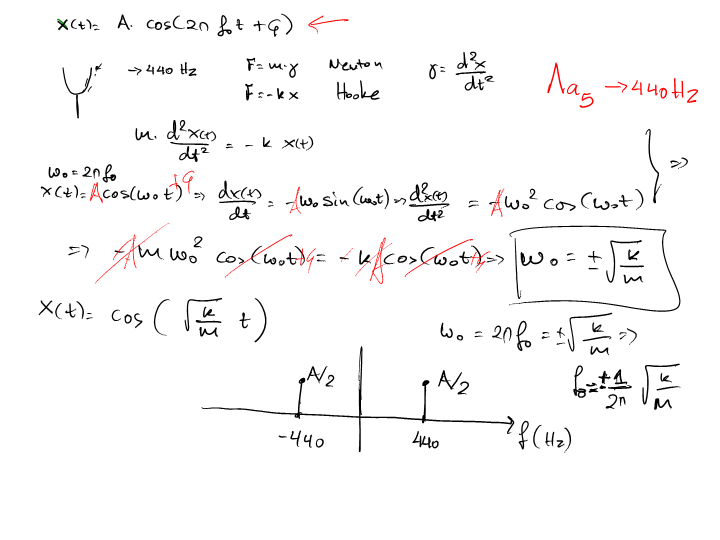 x(t) = A. cos(2π f₀t + φ) ←
→ 440 Hz F = m·γ Newton γ = d²x/dt²
F = -kx Hooke Λα₅ → 440 Hz
m. d²x(t)/dt² = - k x(t)
ω₀ = 2π f₀
x(t) = A cos(ω₀t + φ) ⇒ dx(t)/dt = -Aω₀ sin(ω₀t) ⇒ d²x(t)/dt² = -Aω₀² cos(ω₀t) } ⇒
⇒ -A m ω₀² cos(ω₀t + φ) = - k A cos(ω₀t + φ) ⇒ ω₀ = ± √(k/m)
X(t) = cos ( √(k/m) t )
ω₀ = 2π f₀ = ± √(k/m) ⇒
f₀ = ±1/2π √(k/m)
A/2 A/2
-440 440 f (Hz)